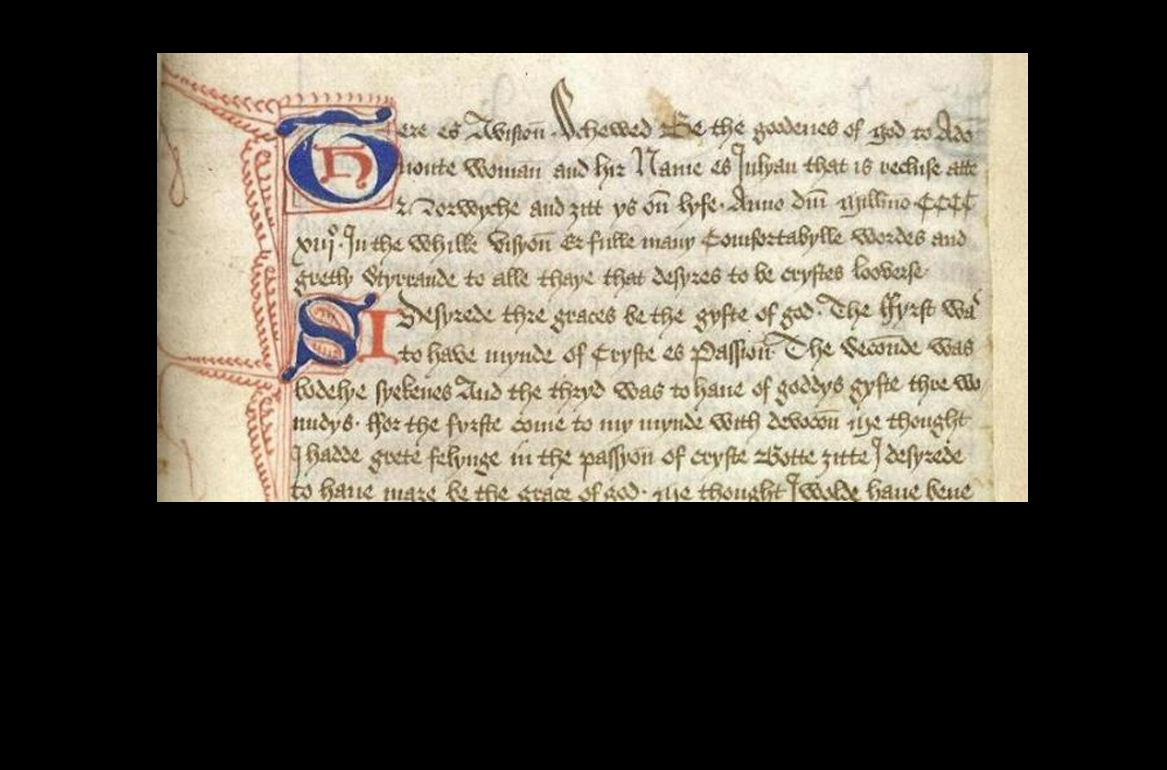 There es Avisioun Schewed Be the goodenes of god to Ade
uoute Woman and hir Name es Julyan that is recluse atte
Norwyche and ȝitt ys oñ lyfe. Anno dm̄ millmo CCCC
xiijº. In the whilke visyoñ Er fulle many Comfortabylle wordes and
gretly Styrrande to alle thaye that desyres to be crystes looverse.
I Desyrede thre graces be the gyfte of god. The ffyrst was
to have mynde of Cryste es Passioñ. The Secoñde was
bodelye syekenes And the thryd was to haue of goddys gyfte thre wo
undys. ffor the fyrste come to my mynde with devocoñ me thought
I hadde grete felynge in the passyoñ of cryste Botte ȝitte I desyrede
to haue mare be the grace of god. me thought I wolde haue bene